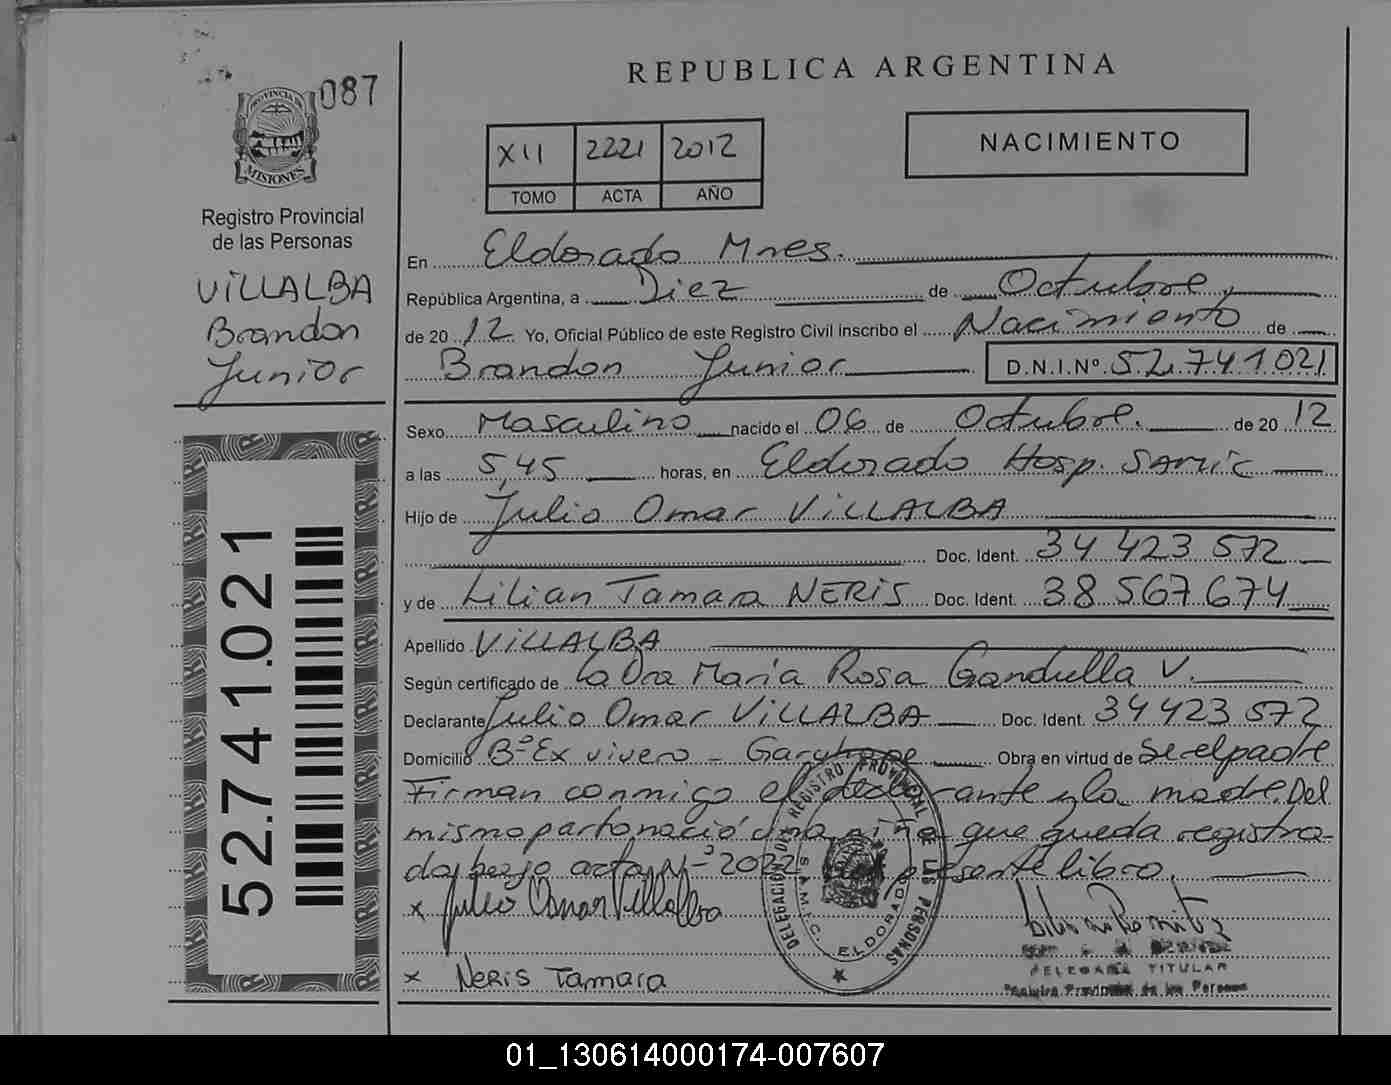 087
PROVINCIA DE
MISIONES
Registro Provincial
de las Personas
VILLALBA
Brandon
Junior
52.741.021
REPUBLICA ARGENTINA
NACIMIENTO
XII 2221 2012
TOMO ACTA AÑO
En Eldorado Mnes.
República Argentina, a Diez de Octubre,
de 2012 Yo, Oficial Público de este Registro Civil inscribo el Nacimiento de
Brandon Junior D.N.I.Nº 52.741.021
Sexo Masculino nacido el 06 de Octubre. de 2012
a las 5,45 horas, en Eldorado Hosp. SAMIC
Hijo de Julio Omar VILLALBA
Doc. Ident. 34 423 572
y de Lilian Tamara NERIS Doc. Ident. 38 567 674
Apellido VILLALBA
Según certificado de la Dra Maria Rosa Gandulla V.
Declarante Julio Omar VILLALBA Doc. Ident. 34 423 572
Domicilio Bº Ex vivero - Garuhape Obra en virtud de Ser el padre
Firman conmigo el declarante y la madre. Del
mismo parto nació una niña que queda registra-
da bajo acta Nº 2022 presente libro.
x Julio Omar Villalba
x Neris Tamara
DELEGACION DEL REGISTRO PROVINCIAL DE LAS PERSONAS
S.A.M.I.C. ELDORADO
DELEGADA TITULAR
Registro Provincial de las Personas
01_130614000174-007607